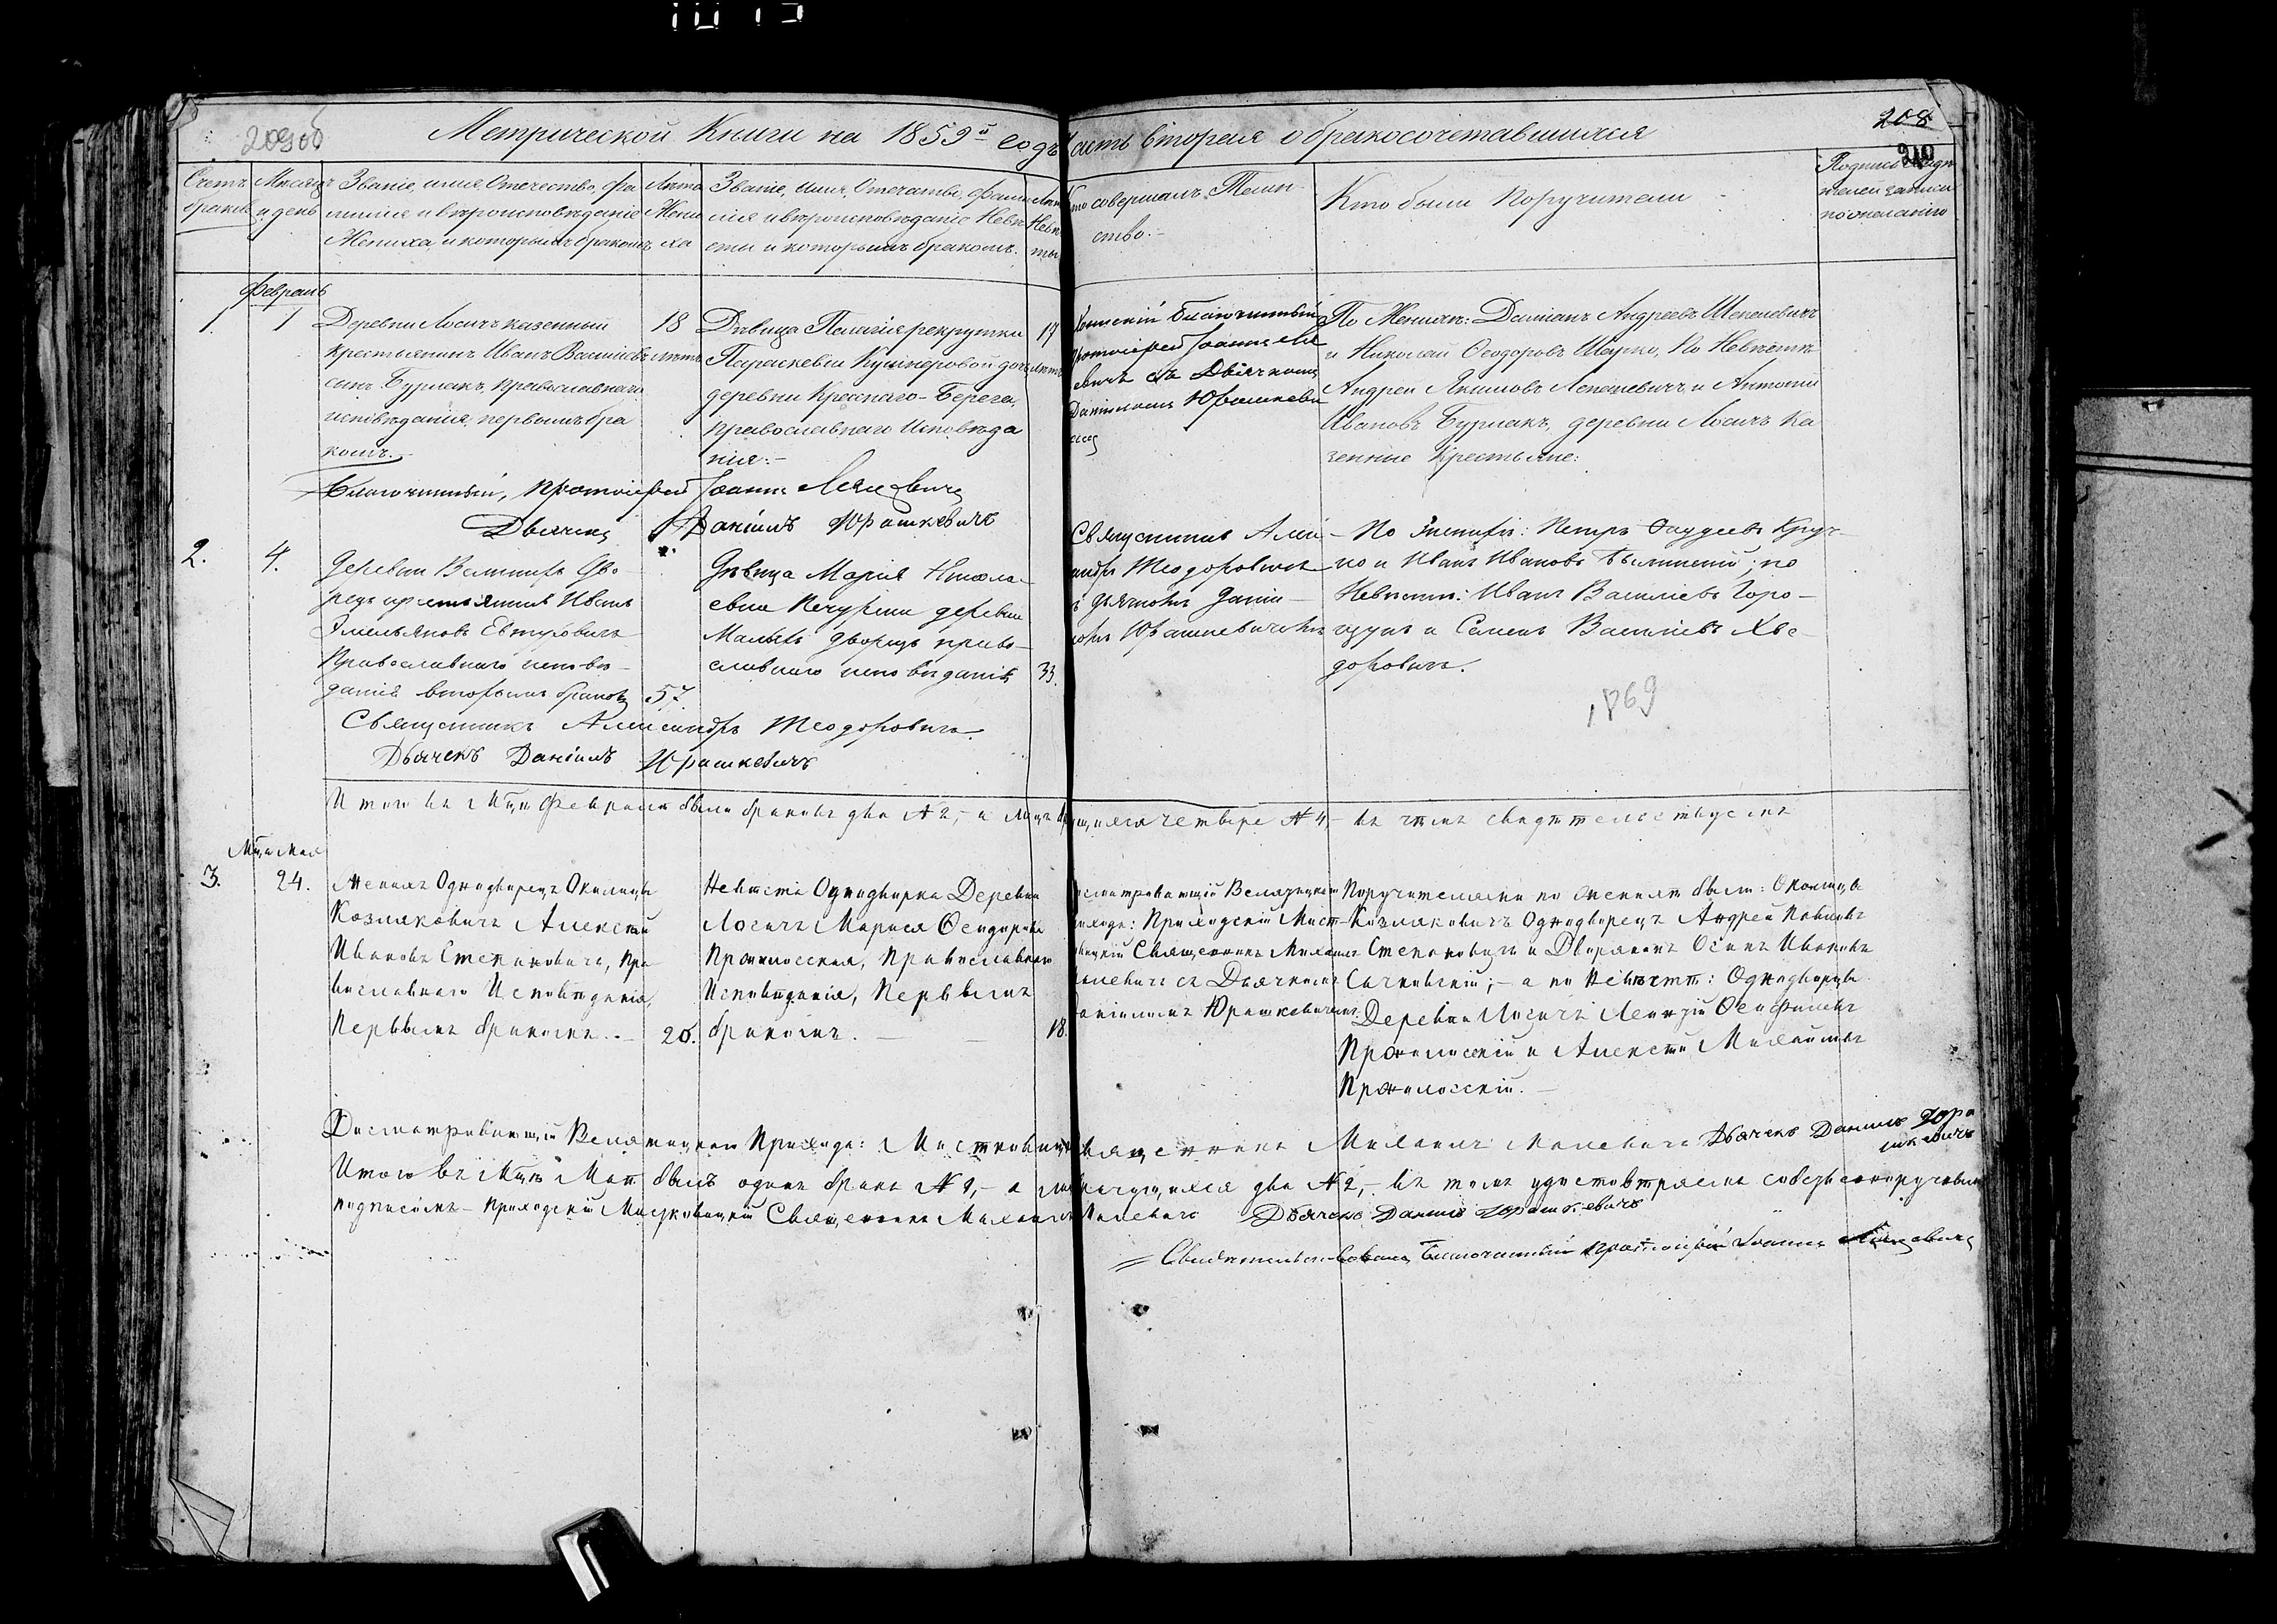 209об
208
210
Метрической Книги на 1859й годъ Часть вторая о бракосочетавшихся
Счетъ браковъ
Месяцъ и день
Званіе, имя, Отечество, фамилія и вѣроисповѣданіе Жениха, и которымъ бракомъ
Лѣта Жениха
Званіе, имя, Отечество, фамилія и вѣроисповѣданіе Невѣсты и которымъ бракомъ.
Лѣта Невѣсты
Кто совершалъ Таинство.-
Кто были Поручители
Подпись свидѣтелей записи по желанію
Февраль
1.
1
Деревни Лосичъ казенный
Крестьянинъ Иванъ Василіевъ
сынъ Бурмакъ, православнаго
исповѣданія, первымъ бра
комъ.-
18
лѣтъ
Дѣвица Пелагія рекрутки
Параскевіи Кушнеровой дочь
деревни Краснаго-Берега,
православнаго Исповѣда
нія:-
17
лѣтъ
Благочинный
Протоіерей Іоаннъ
съ Дьячкомъ
Даніиломъ Юрашкеви
По Женихѣ: Даміанъ Андреевъ Шепелевичъ
и Николай Ѳеодоровъ Шарко, По Невѣстѣ
Андрей Якимовъ Лепешевичъ и Антоній
Ивановъ Бурмакъ, деревни Лосичъ ка
зенные Крестьяне:
Благочинный, Протоіерей Іоаннъ
Дьячекъ Даніилъ Юрашкевичъ
2.
4.
Деревни Дво
рецъ крестьянинъ Иванъ
Эмельяновъ Евтуховичъ
Православнаго исповѣ-
данія вторымъ бракомъ
57.
Дѣвица Марія Никола-
евна Печурина деревни
Малыхъ дворецъ право-
славнаго исповѣданія
33.
Священникъ Алек
сандръ Теодоровичъ
съ Дьячкомъ Дані-
иломъ Юрашкевичемъ
- По женихѣ: Петръ Фаддеевъ Круч-
ко и Иванъ Ивановъ; по
Невѣстѣ: Иванъ Василіевъ Горо-
и Семенъ Василіевъ Хве-
доровичъ.
1869
Священникъ Александръ Теодоровичъ
Дьячекъ Даніилъ Юрашкевичъ
Итого въ Мцѣ Февралѣ было браковъ два № 2,- а лицъ четверо № 4,- въ чемъ свидѣтельствуемъ
Мца Мая
3.
24.
Женихъ Однодворецъ Околицы
Козляковичъ Алексѣй
Ивановъ Степановичъ, Пра
вославнаго Исповѣданія,
Первымъ бракомъ.-
26.
Невѣста Однодворка Деревни
Лосичъ Марися Осипова
Прокилосская, Православнаго
Исповѣданія, Первымъ
бракомъ.-
18.
Досматривающій Велятицкій
Прихода: Приходскій
Священникъ Михаилъ
Малевичъ съ Дьячкомъ
Даніиломъ Юрашкевичемъ.
Поручителями по женихѣ были: Околицы
Козляковичъ Однодворецъ Андрей Павловъ
Степановичъ и Дворянинъ Осипъ Ивановъ
Сачковскій;- а по Невѣстѣ: Однодворцы
Деревни Лосичъ Осифовъ
Прокилосскій и Алексѣй Михайловъ
Прокилосскій.-
Досматривающій Велятицкій Прихода: Священникъ Михаилъ Малевичъ Дьячекъ Даніилъ Юра
шкевичъ
Итого въ Мцѣ Маѣ былъ одинъ бракъ № 1,- а лицъ два № 2,- въ томъ удостовѣряемъ собственоручнымъ
подписомъ- Приходскій Священникъ Михаилъ Малевичъ Дьячекъ Даніилъ Юрашкевичъ
Свидѣтельствовалъ Благочинный Протоіерей Іоаннъ